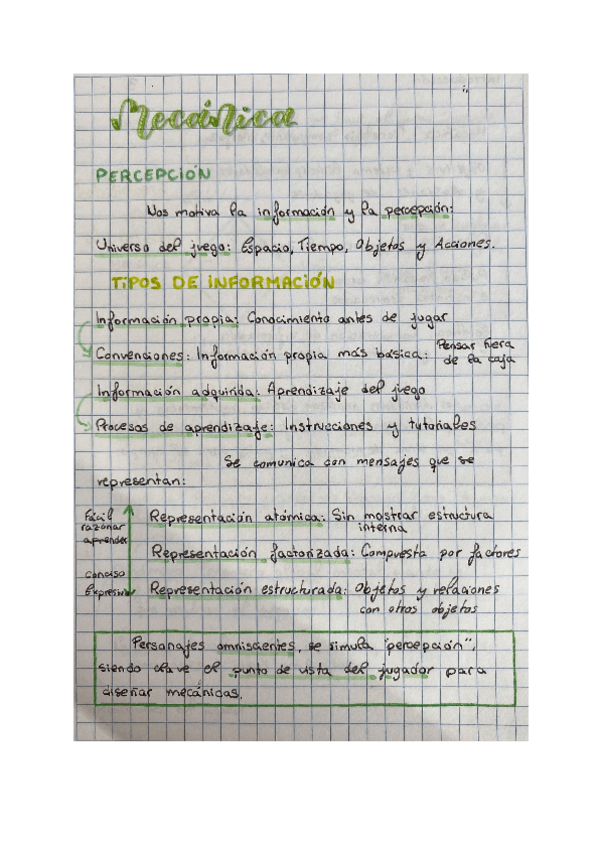 Mecánica
PERCEPCIÓN
Nos motiva la información y la percepción:
Universo del juego: Espacio, Tiempo, Objetos y Acciones.
TIPOS DE INFORMACIÓN
Información propia: Conocimiento antes de jugar
Convenciones: Información propia más básica: Pensar fuera de la caja
Información adquirida: Aprendizaje del juego
Procesos de aprendizaje: Instrucciones y tutoriales
Se comunica con mensajes que se
representan:
Fácil
razonar
aprender
Representación atómica: Sin mostrar estructura
interna
Representación factorizada: Compuesta por factores
conciso
Expresivo
Representación estructurada: Objetos y relaciones
con otros objetos
Personajes omniscientes, se simula "percepción",
siendo clave el punto de vista del jugador para
diseñar mecánicas.